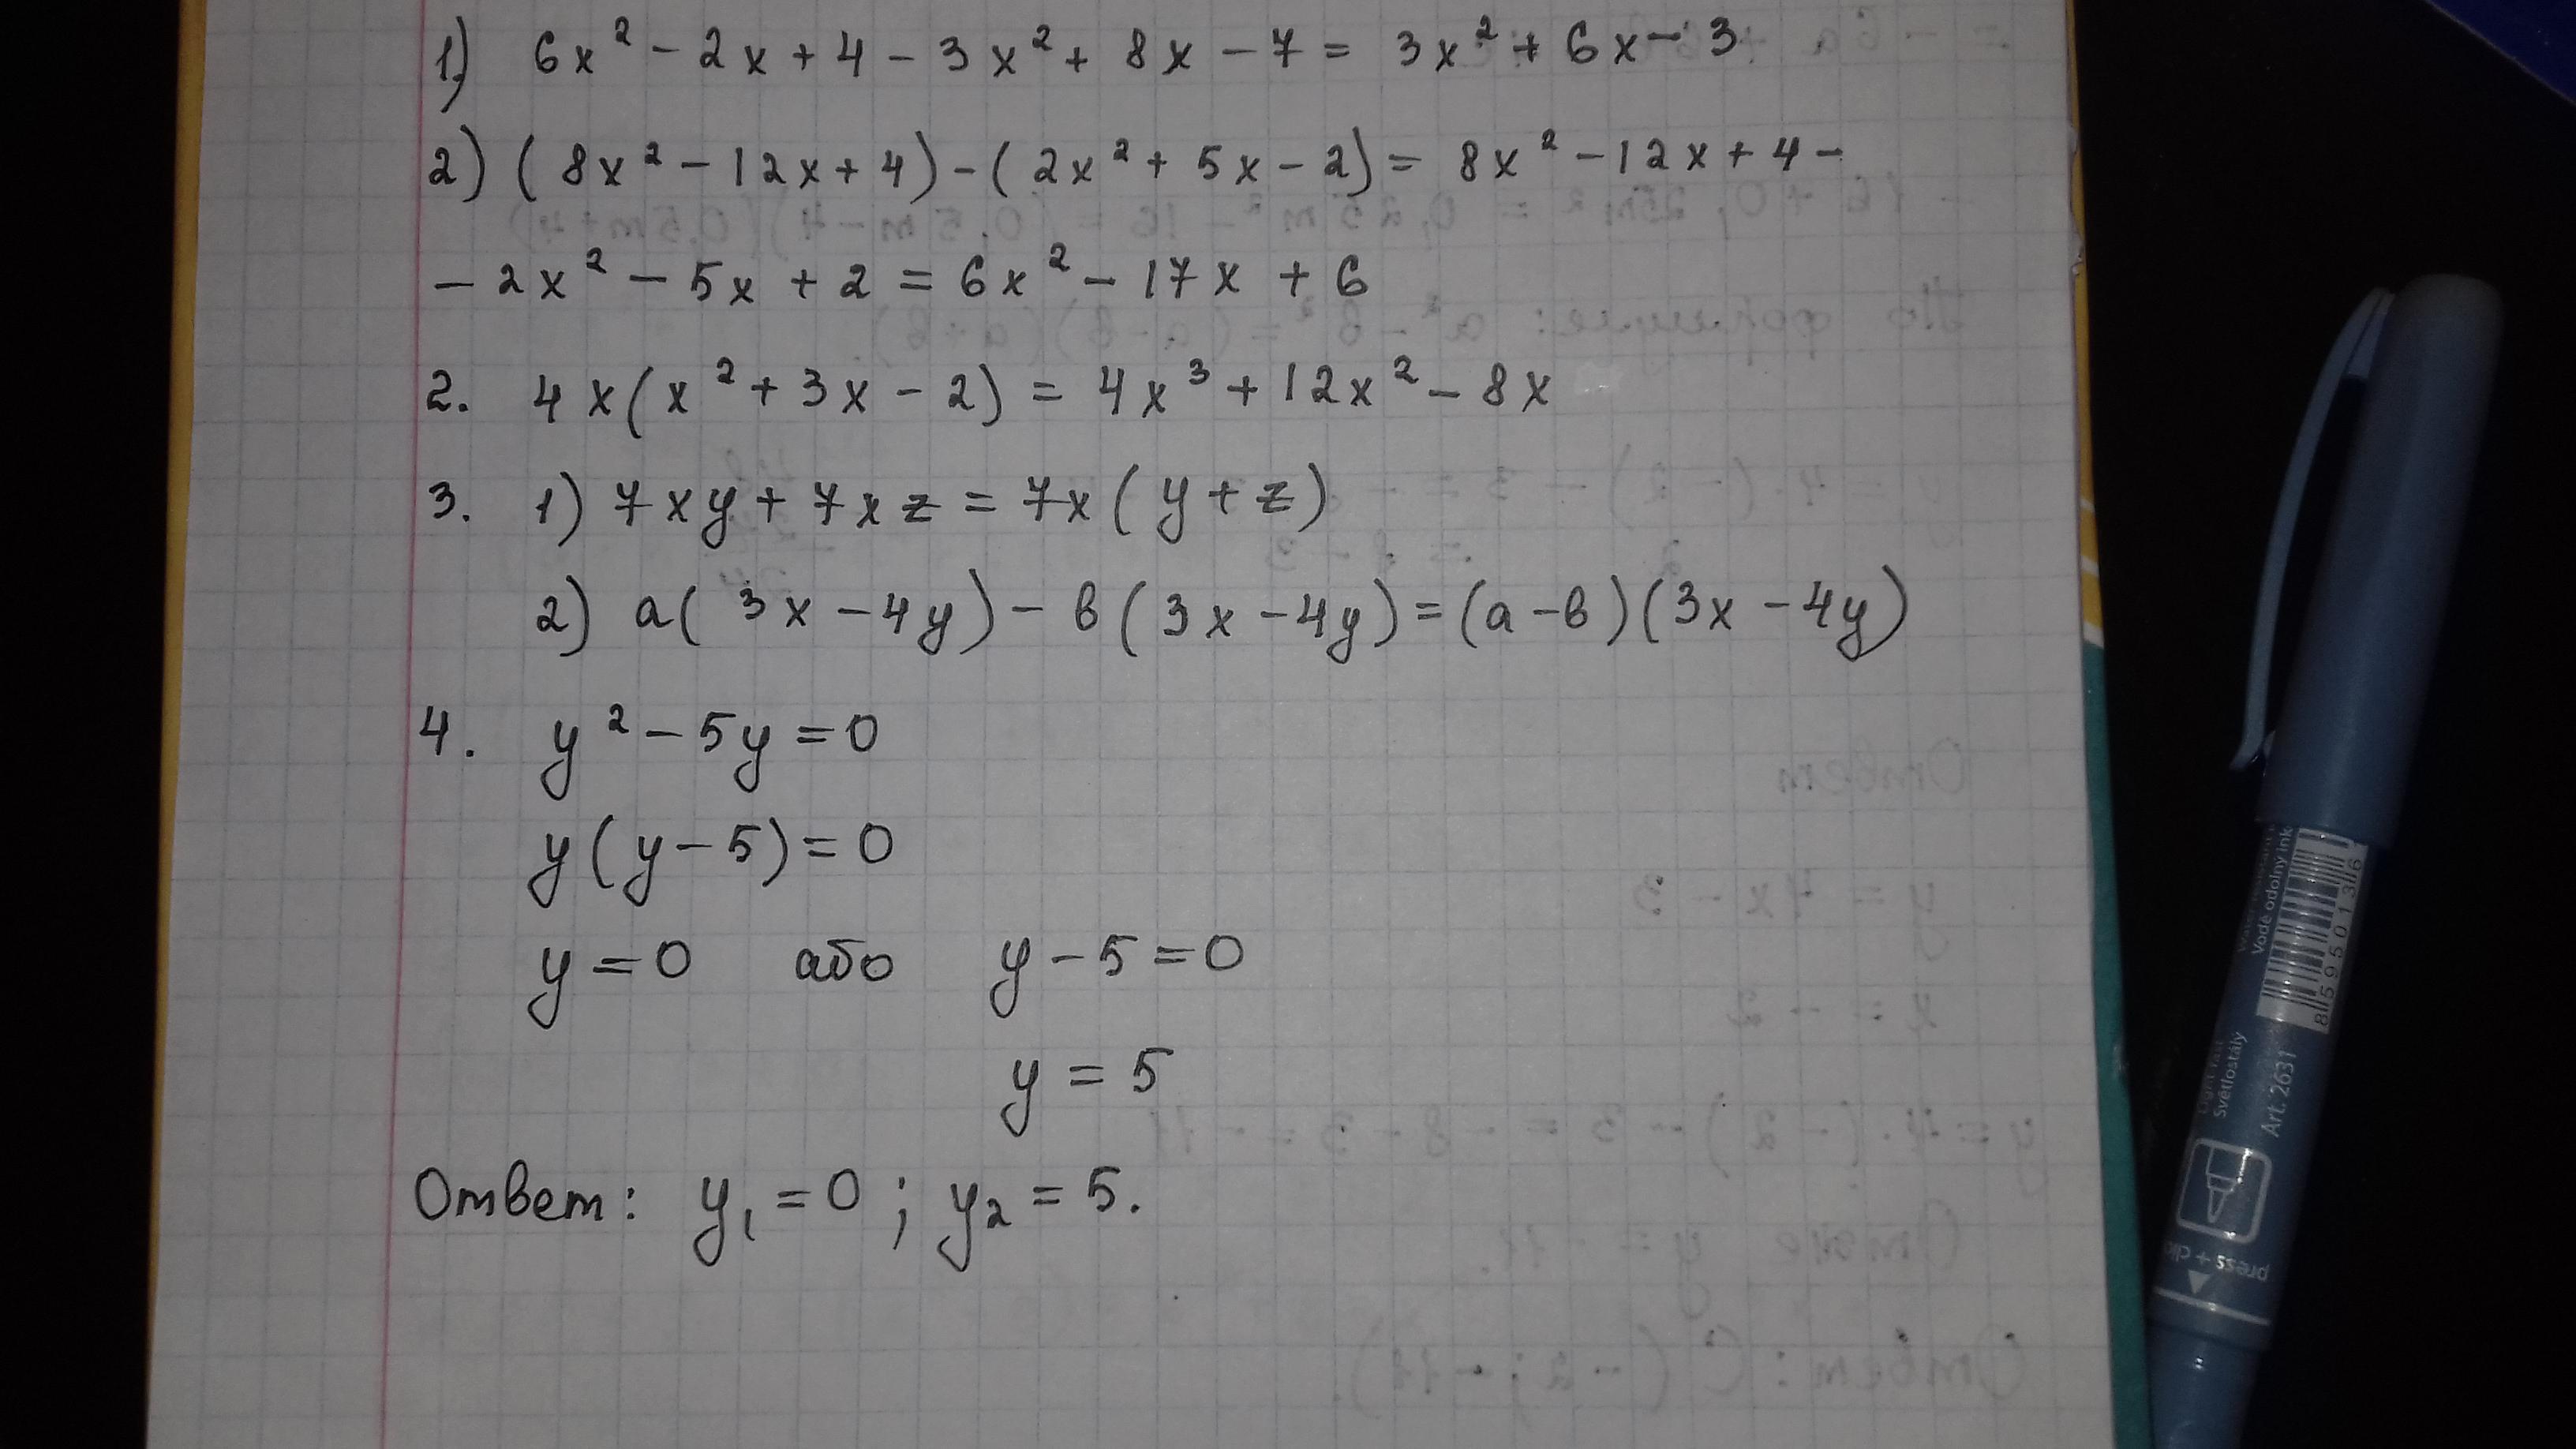 1) 6x² - 2x + 4 - 3x² + 8x - 7 = 3x² + 6x - 3
2) (8x² - 12x + 4) - (2x² + 5x - 2) = 8x² - 12x + 4 -
- 2x² - 5x + 2 = 6x² - 17x + 6
2. 4x(x² + 3x - 2) = 4x³ + 12x² - 8x
3. 1) 7xy + 7xz = 7x(y + z)
2) a(3x - 4y) - b(3x - 4y) = (a - b)(3x - 4y)
4. y² - 5y = 0
y(y - 5) = 0
y = 0 або y - 5 = 0
y = 5
Ответ: y₁ = 0; y₂ = 5.
Vodě odolný ink
Světlostálý
Art. 2631
8 595013 6
press + clic